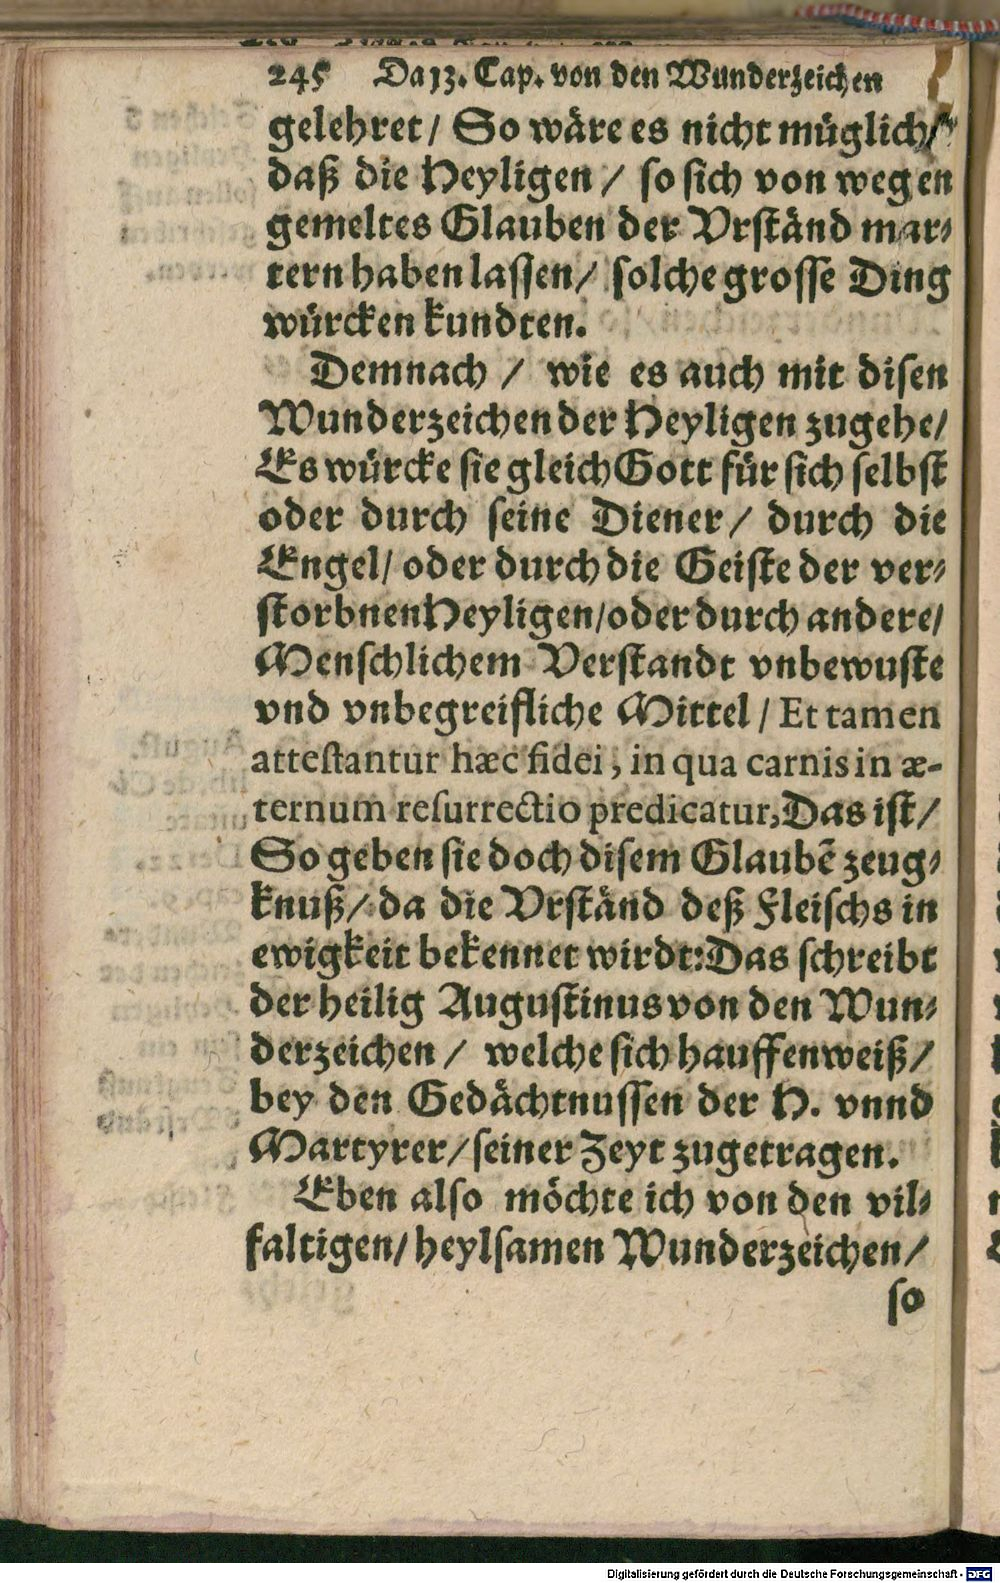 245 Da 13. Cap. von den Wunderzeichen
gelehret / So wäre es nicht müglich /
daß die Heyligen / so sich von wegen
gemeltes Glauben der Vrständ mar-
tern haben lassen / solche grosse Ding
würcken kundten.
Demnach / wie es auch mit disen
Wunderzeichen der Heyligen zugehe /
Es würcke sie gleich Gott für sich selbst
oder durch seine Diener / durch die
Engel / oder durch die Geiste der ver-
storbnen Heyligen / oder durch andere /
Menschlichem Verstandt vnbewuste
vnd vnbegreifliche Mittel / Et tamen
attestantur hæc fidei, in qua carnis in æ-
ternum resurrectio predicatur, Das ist /
So geben sie doch disem Glaubē zeug-
knuß / da die Vrständ deß Fleischs in
ewigkeit bekennet wirdt: Das schreibt
der heilig Augustinus von den Wun-
derzeichen / welche sich hauffenweiß /
bey den Gedächtnussen der H. vnnd
Martyrer / seiner Zeyt zugetragen.
Eben also möchte ich von den vil-
faltigen / heylsamen Wunderzeichen /
so
Digitalisierung gefördert durch die Deutsche Forschungsgemeinschaft - DFG